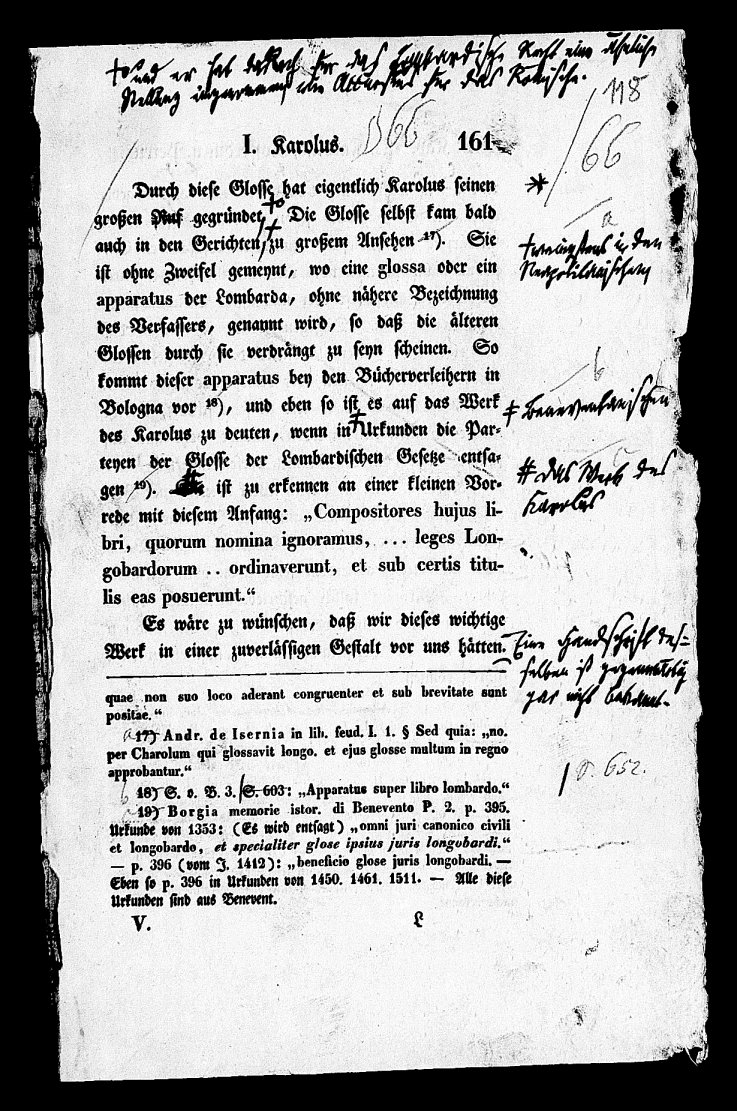 ✝o und er hat dadurch für das Lombardische Recht eine ähnliche
Stellung eingenommen wie Accursius für das Römische.
118
66
I. Karolus.
66
161
Durch diese Glosse hat eigentlich Karolus seinen
großen Ruf gegründet. Die Glosse selbst kam bald
auch in den Gerichten, zu großem Ansehen 17). Sie
ist ohne Zweifel gemeynt, wo eine glossa oder ein
apparatus der Lombarda, ohne nähere Bezeichnung
des Verfassers, genannt wird, so daß die älteren
Glossen durch sie verdrängt zu seyn scheinen. So
kommt dieser apparatus bey den Bücherverleihern in
Bologna vor 18), und eben so ist es auf das Werk
des Karolus zu deuten, wenn in Urkunden die Par-
teyen der Glosse der Lombardischen Gesetze entsa-
gen 19). ist zu erkennen an einer kleinen Vor-
rede mit diesem Anfang: „Compositores hujus li-
bri, quorum nomina ignoramus, ... leges Lon-
gobardorum .. ordinaverunt, et sub certis titu-
lis eas posuerunt.“
Es wäre zu wünschen, daß wir dieses wichtige
Werk in einer zuverlässigen Gestalt vor uns hätten.
*
a
✝ wenigstens in den
Neapolitanischen
b
‡ Beneventanischen
# das Werk des
Karolus
Eine Handschrift des-
selben ist gegenwärtig
gar nicht bekannt.
quae non suo loco aderant congruenter et sub brevitate sunt
positae.“
a 17) Andr. de Isernia in lib. feud. I. 1. § Sed quia: „no.
per Charolum qui glossavit longo. et ejus glosse multum in regno
approbantur.“
b 18) S. o. B. 3. S. 603: „Apparatus super libro lombardo.“
p. 652.
19) Borgia memorie istor. di Benevento P. 2. p. 395.
Urkunde von 1353: (Es wird entsagt) „omni juri canonico civili
et longobardo, et specialiter glose ipsius juris longobardi.“
— p. 396 (vom J. 1412): „beneficio glose juris longobardi. —
Eben so p. 396 in Urkunden von 1450. 1461. 1511. — Alle diese
Urkunden sind aus Benevent.
V. L